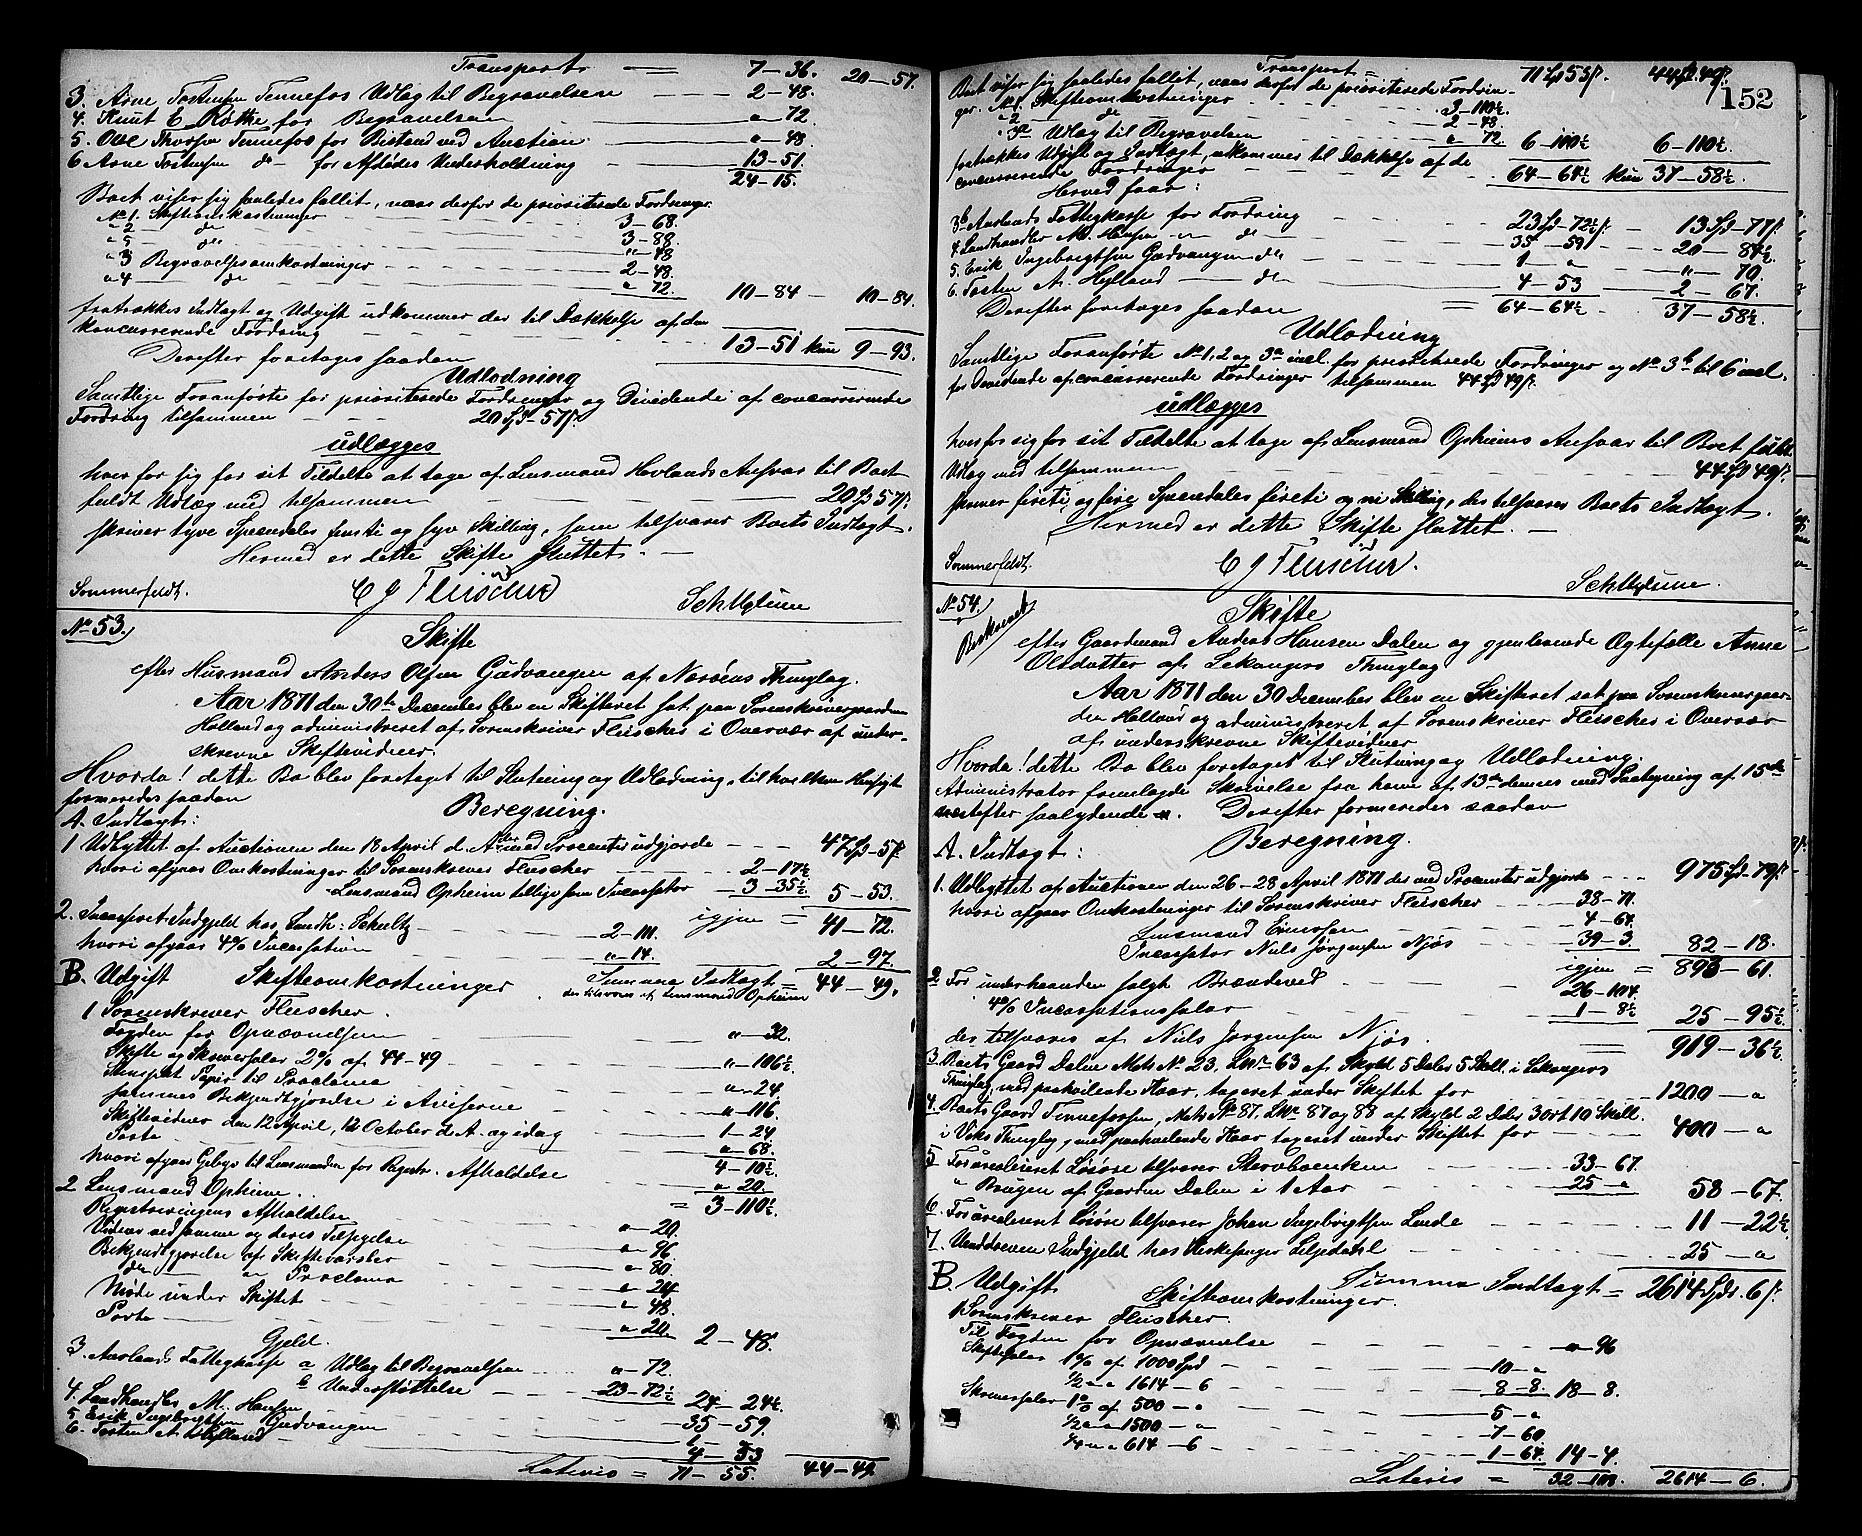 Transport = 7–36. 20–57.
3. Arne Tostensen Tennefos Udlæg til Begravelsen – – – 2–48.
4. Knut E. Røtke for Begravelsen – " – 72.
5. Ole Thorsen Tennefos for Bistand ved Auction – " – 48.
6 Arne Tostensen do – for Afdødes Underholdning – 13–51.
24–15.
Boet viser sig saaledes fallit, naar derfor de prioriterede Fordringer
No 1. Skifteomkostninger – 3–68.
" 2 – do – 3–88.
" 5 – do – " – 48
" 3 Begravelsesomkostninger – 2–48.
" 4 – do – " 72.
10–84 – 10–84.
fratrækkes Indtægt og Udgift udkommer der til Dækkelse af den
concurrerende Fordring – 13–51 kun 9–93.
Derefter foretages saadan
Udlodning
Samtlige Foranførte for prioriterede Fordringer og Dividende af concurrerende
Fordring tilsammen – 20 Spd – 57 s.
udlægges
hver for sig for sit Tildelte at tage af Lensmand Hovlands Ansvar til Boet
fuldt Udlæg med tilsammen – 20 Spd 57 s.
skriver tyve Speciedaler femti og syv Skilling, som tilsvarer Boets Indtægt.
Hermed er dette Skifte sluttet. –
Sommerfeldt. C J Fleischer
No 53.
Skifte
efter Husmand Anders Olsen Gudvangen af Nærøens Thinglag.
Aar 1871 den 30te December blev en Skifteret sat paa Sorenskrivergaarden
Holland og administreret af Sorenskriver Fleischer i Overvær af under-
skrevne Skiftevidner.
Hvorda! dette Bo blev foretaget til Slutning og Udlodning, til hvilken Hensigt
formeredes saadan
Beregning.
A. Indtægt:
1 Udbyttet af Auctionen den 18 April d. A. der med Procenter udgjorde – – – 47 Spd – 5 s
hvori afgaar Omkostninger til Sorenskriver Fleischer – 2–17½
Lensmand Opheim tillige som Incassator – 3–35½ 5–53.
igjen = 41–72.
2. Incasseret Indgjeld hos Landh: Schultz – 2–111.
hvori afgaar 4% Incassation – " – 14. 2–97.
Summa Indtægt = 44–49.
der tilsvares af Lensmand Opheim
B. Udgift Skifteomkostninger
1 Sorenskriver Fleischer.
Fogden for Opnævnelsen – " – 32.
Skifte og Skriversalær 2% af 44–49 – " – 106½
Stemplet Papir til Proclama – " – 24
sammes Bekjendtgjørelse i Aviserne – " – 116.
Skiftevidner den 12 April, 12 October d. A. og idag – 1–24
Porto – " – 68.
4–10½
hvori afgaar Gebyr til Lensmanden for Registr. Afholdelse – " 20.
= 3–110½
2 Lensmand Opheim.
Registreringens Afholdelse – " – 20.
Vidner ved samme og deres Tilsigelse – " – 96
Bekjendtgjørelse af Skiftevarsler – " – 80.
do – " Proclama – " – 24
Møde under Skiftet – " – 48.
Porto – " – 20. 2–48.
Gjeld.
3. Aurlands Fattigkasse a Udlæg til Begravelsen – " – 72.
b Understøttelse – 23–72½ 24–24½
4. Landhandler M. Hansen – 35–59.
5. Erik Ingebrigtsen Gudvangen – 1 – "
6. Tosten A. Hylland – 4–53
Lateris = 71–55. 44–49.
152
Transport = 71 Spd 55 s. 44 Spd 49 s.
Boet viser sig saaledes fallit, naar derfor de prioriterede Fordrin-
ger. No 1. Skifteomkostninger – 3–110½
" 2 – do – 2–48
" 3a Udlæg til Begravelsen – " 72. 6–110½ 6–110½.
fratrækkes Udgift og Indtægt, udkommer til Dækkelse af de
concurrerende Fordringer – 64–64½ kun 37–58½.
Herved faar:
3b Aurlands Fattigkasse for Fordring – 23 Spd – 72½ s – 13 Spd – 77 s
4. Landhandler M. Hansen – " – do – 35–59 – 20–84½
5. Erik Ingebrigtsen Gudvangen do – 1 – " – " – 70.
6. Tosten A. Hylland – do – 4–53 – 2–67.
Derefter foretages saadan = 64–64½ 37–58½.
Udlodning
Samtlige Foranførte No 1, 2 og 3a incl. for prioriterede Fordringer og No 3b til 6 incl.
for Dividende af concurrerende Fordringer tilsammen 44 Spd 49 s.
udlægges
hver for sig for sit Tildelte at tage af Lensmand Opheims Ansvar til Boet fuldt
Udlæg med tilsammen – 44 Spd 49 s.
skriver fireti og fire Speciedaler fireti og ni Skilling, der tilsvarer Boets Indtægt.
Hermed er dette Skifte sluttet. –
Sommerfeldt. C J Fleischer.
No 54.
Skifte
efter Gaardmand Anders Hansen Dalen og gjenlevende Ægtefælle Anna
Olsdatter af Lekangers Thinglag
Aar 1871 den 30 December blev en Skifteret sat paa Sorenskrivergaar-
den Holland og administreret af Sorenskriver Fleischer i Overvær
af underskrevne Skiftevidner
Hvorda! dette Bo blev foretaget til Slutning og Udlodning.
Administrator fremlagde Skrivelse fra ham af 13de dennes med Paategning af 15de
næstefter saalydende ". Derefter formeredes saadan
Beregning.
A. Indtægt:
1. Udbyttet af Auctionen den 26–28 April 1871 der med Procenter udgjorde – – – 975 Spd – 79 s
hvori afgaar Omkostninger til Sorenskriver Fleischer – 38–71.
Lensmand Eirissen – 4–64.
Incassator Niels Jørgensen Njøs – 39–3. 82–18.
igjen = 893–61.
2 For underhaanden solgt Brændeved – 26–104.
4% Incassationssalær – 1–8½ 25–95½
der tilsvares af Niels Jørgensen Njøs. = 919–36½
3. Boets Gaard Dalen Mats No 23, LNr 63 af Skyld 5 Daler 5 Skill. i Lekangers
Thinglag, med paahvilende Kaar, taxeret under Skiftet for – 1200 – "
4. Boets Gaard Tennefossen, Mats No 87. LNr 87 og 88 af Skyld 2 Daler 3 ort 10 Skill.
i Viks Thinglag, med paahvilende Kaar taxeret under Skiftet for – 400 – "
5 For uauctioneret Løsøre tilsvarer Stervboenken – 33–67.
" Brugen af Gaarden Dalen i 1 Aar – 25 – " 58–67.
6. For uauctioneret Løsøre tilsvarer Johan Ingebrigtsen Lunde – 11–22½
7. Uinddreven Indgjeld hos Kirkesanger Liljedahl – 25 – "
Summa Indtægt = 2614 Spd. 6 s.
B. Udgift Skifteomkostninger.
1 Sorenskriver Fleischer.
Til Fogden for Opnævnelse – " – 96
Skiftesalær 1% af 1000 Spd – 10 – "
½ " – " 1614 – 6 – 8–8. 18–8.
Skriversalær 1% af 500 – " – 5 – "
½ " " 1500 – " – 7–60
¼ " " 614 – 6 – 1–64. 14–4.
Lateris = 2614–6.